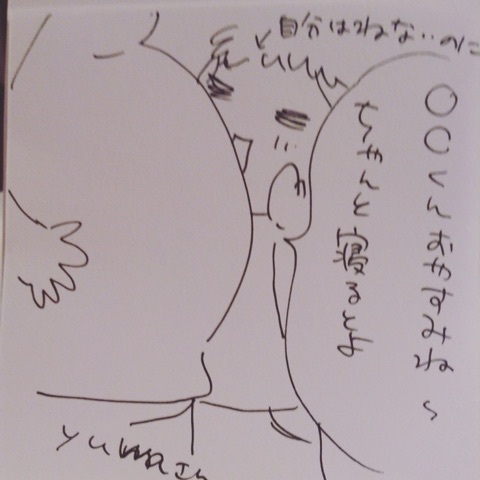 自分はねないのに
〇〇くんおやすみね〜
ちゃんと寝るとよ